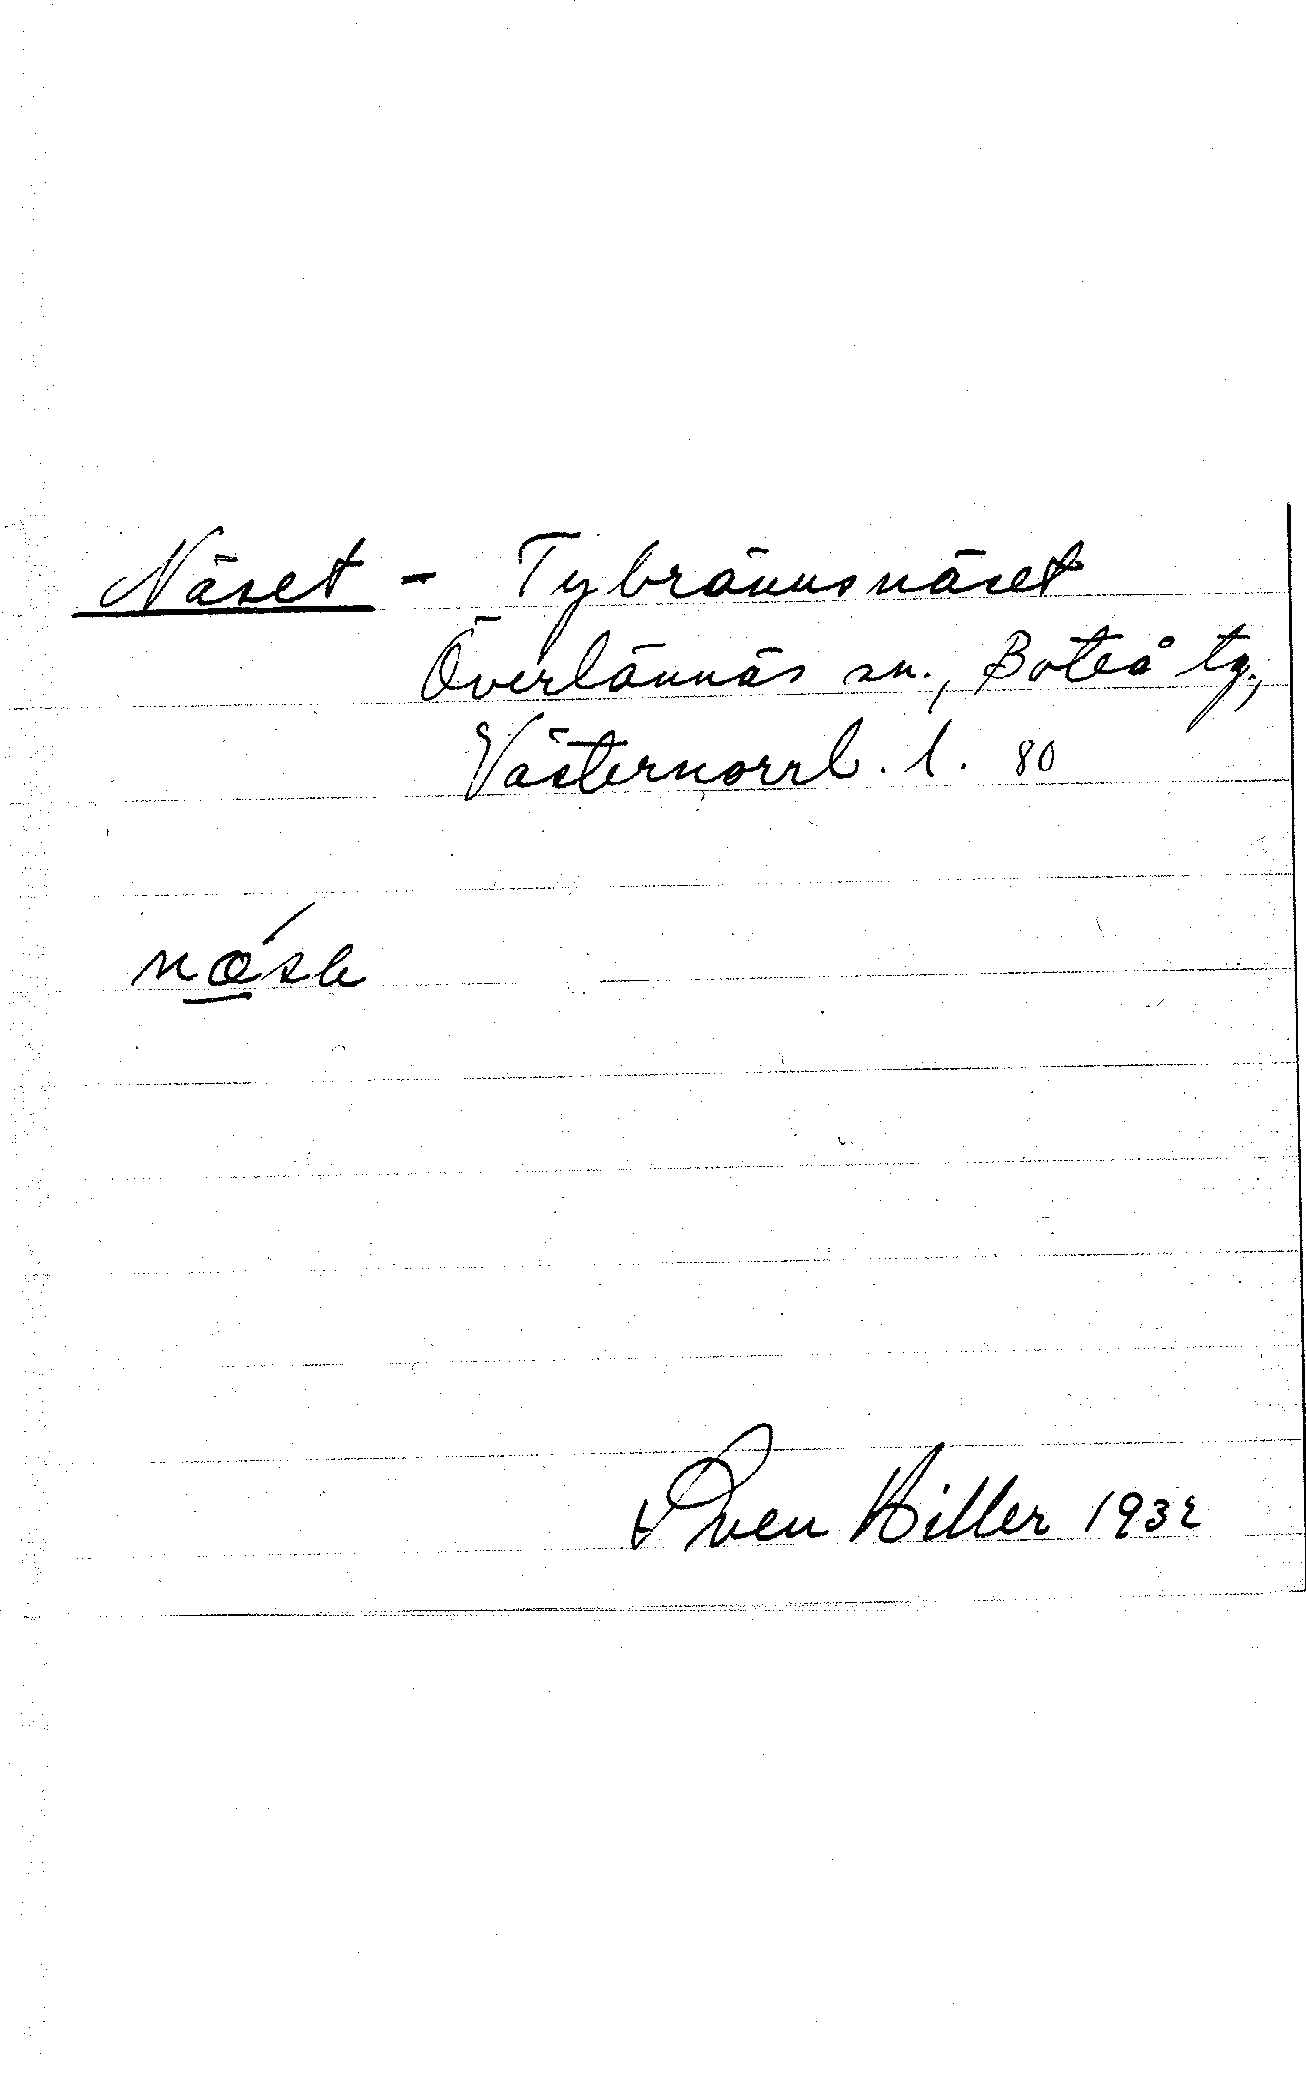 Näset - Tybrännsnäset
Överlännäs sn., Boteå tg.,
Västernorrl. l. 80
Sven Hiller 1932